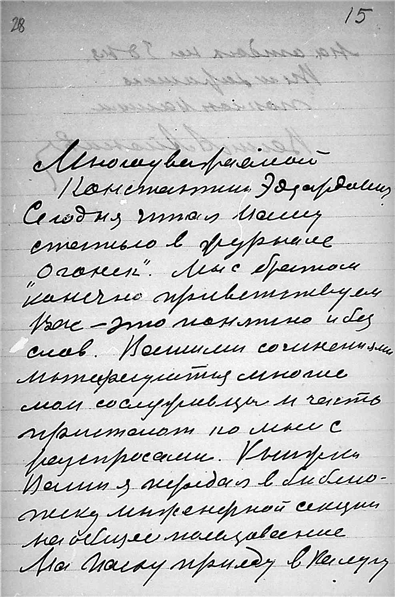 28
15
Многоуважаемой
Константин Эдуардович
Сегодня читал Вашу
статью в журнале
"Огонек". Мы с братом
конечно приветствуем
Вас – это понятно и без
слов. Вашими сочинениями
интересуются многие
мои сослуживцы и часть
пристают ко мне с
распросами. Книги
Ваши я передал в библио-
теку инженерной секции
на общее пользование
На Пасху приеду в Калугу